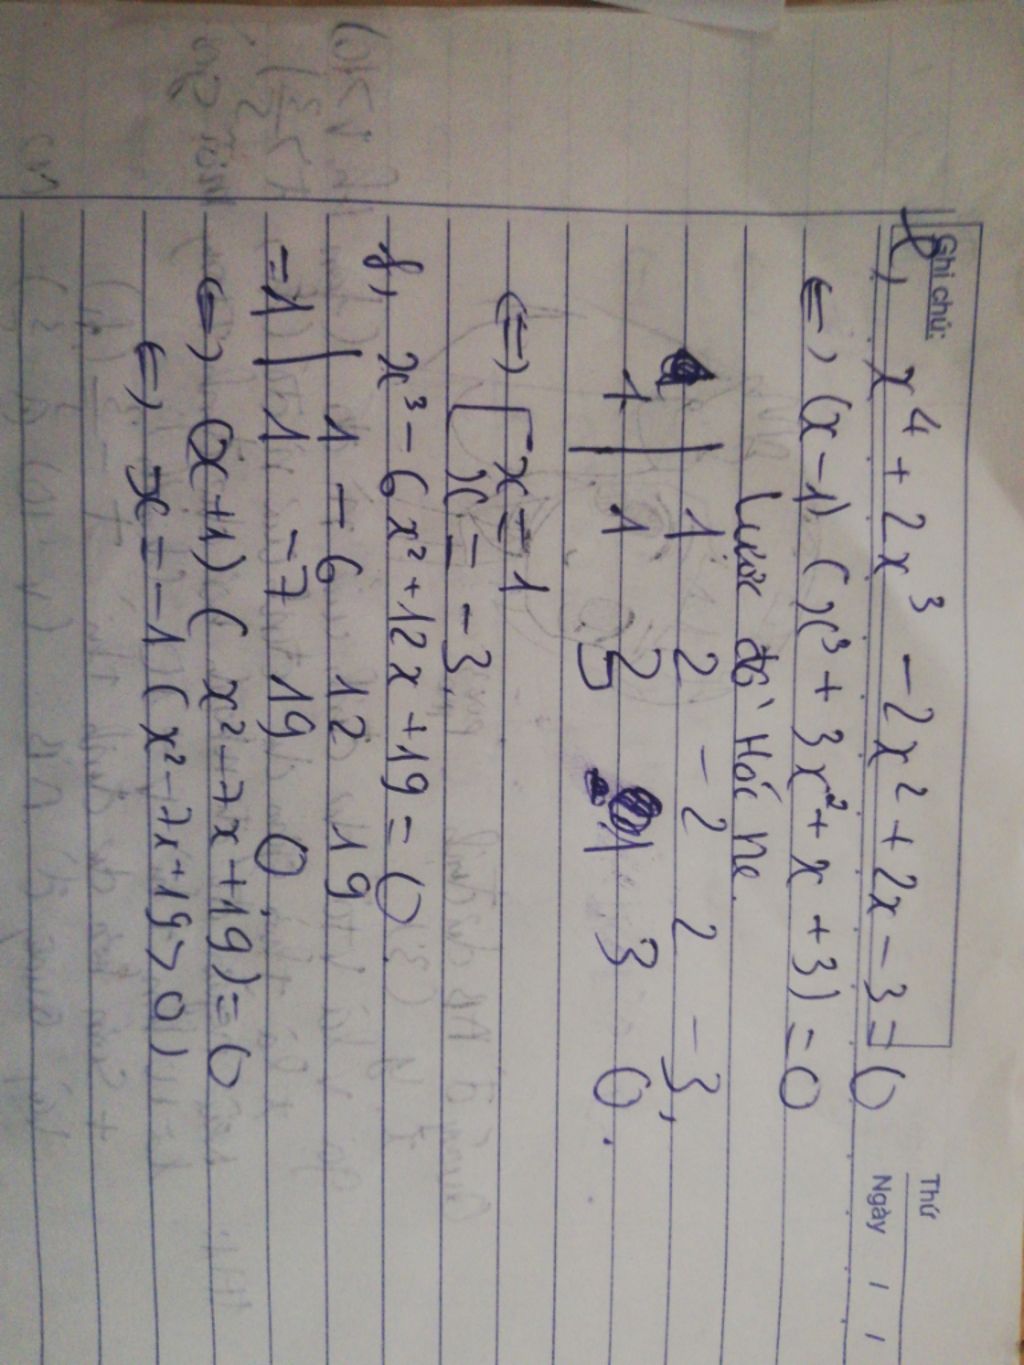 Ghi chú:
Thứ
Ngày / /
x⁴ + 2x³ - 2x² + 2x - 3 = 0
<=> (x - 1) (x³ + 3x² + x + 3) = 0
Lược đồ Hóc ne.
1 2 -2 2 -3,
1 1 3 1 3 0.
<=> [ x = 1
x = -3,
f, x³ - 6x² + 12x + 19 = 0
1 -6 12 19
-1 1 -7 19 0
<=> (x + 1) ( x² - 7x + 19) = 0
<=> x = -1 ( x² - 7x + 19 > 0 )